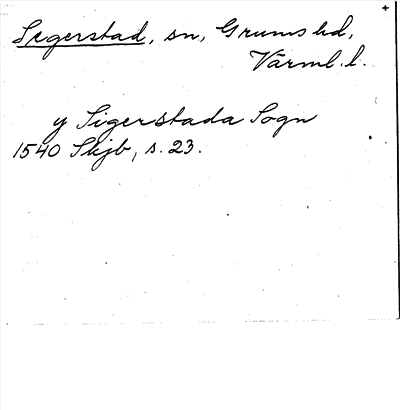 Segerstad, sn, Grums hd,
Värml. l.
y Sigerstada Sogn
1540 Skjb, s. 23.